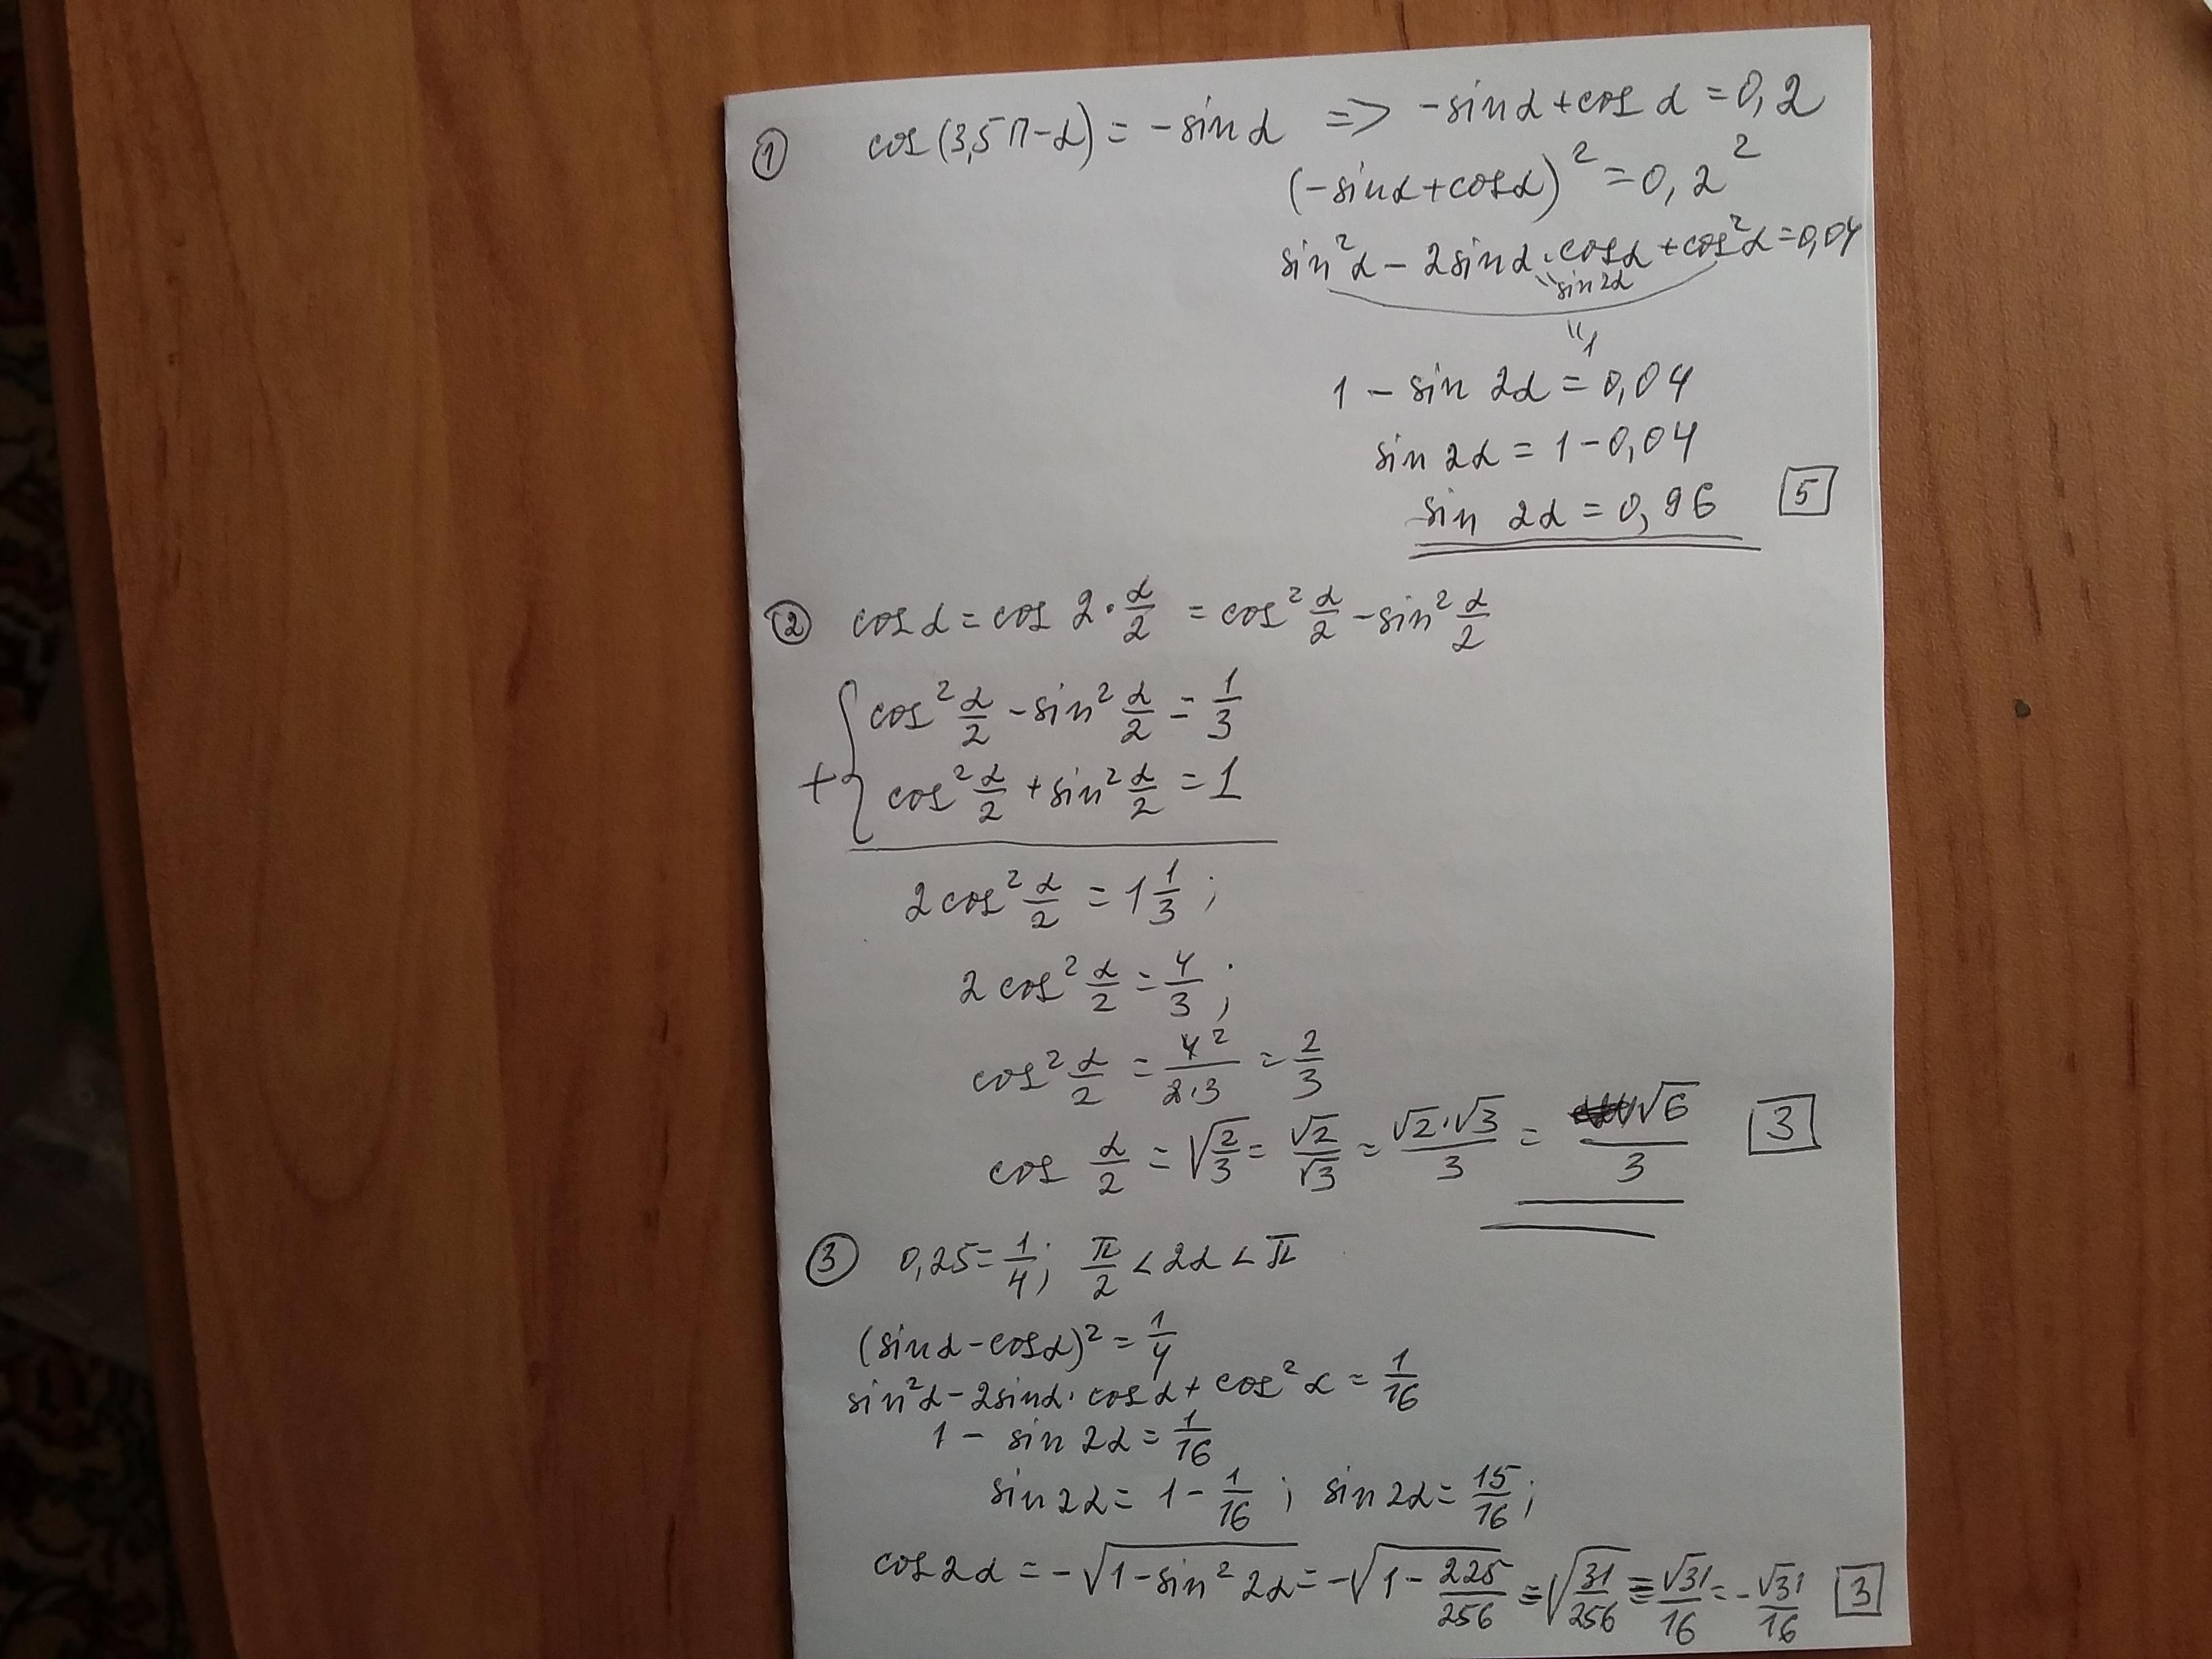 ① cos(3,5π-α) = -sinα => -sinα+cosα=0,2
(-sinα+cosα)²=0,2²
sin²α-2sinα·cosα+cos²α=0,04
"sin2α
"1
1-sin2α=0,04
sin2α=1-0,04
sin 2α=0,96 [5]
② cosα=cos 2·α/2 = cos² α/2 - sin² α/2
cos² α/2 - sin² α/2 = 1/3
+{
cos² α/2 + sin² α/2 = 1
2cos² α/2 = 1 1/3;
2cos² α/2 = 4/3;
cos² α/2 = 4²/2·3 = 2/3
cos α/2 = √2/3 = √2/√3 = √2·√3/3 = √6/3 [3]
③ 0,25=1/4; π/2<2α<π
(sinα-cosα)²=1/4
sin²α-2sinα·cosα+cos²α=1/16
1-sin2α=1/16
sin2α=1-1/16; sin2α=15/16;
cos2α=-√1-sin²2α=-√1-225/256=√31/256=√31/16=-√31/16 [3]